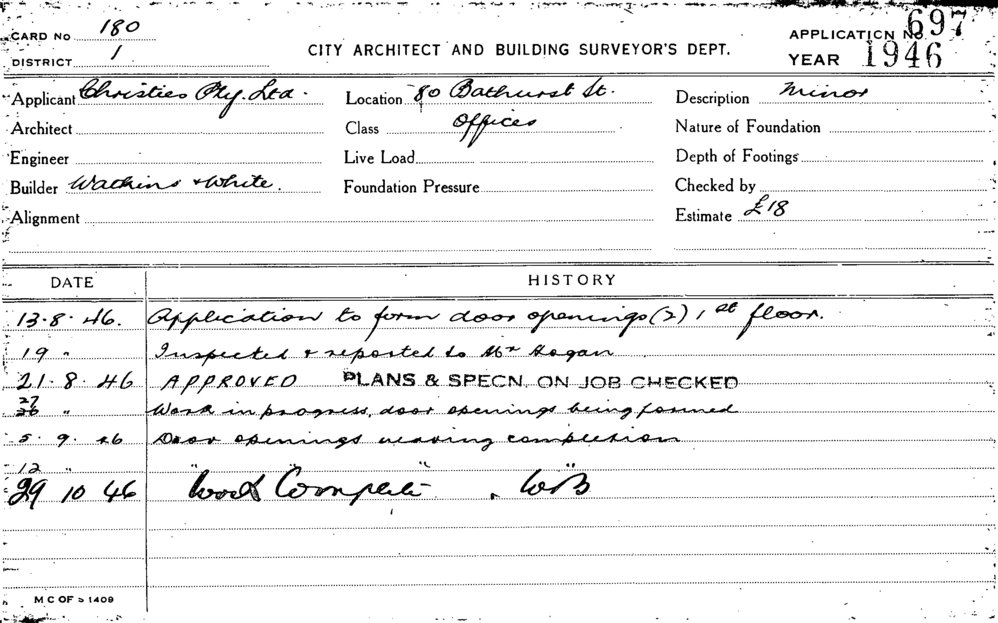 CARD No 180
DISTRICT 1
CITY ARCHITECT AND BUILDING SURVEYOR'S DEPT.
APPLICATION No. 697
YEAR 1946
Applicant Christies Pty. Ltd.
Location 80 Bathurst St.
Description Minor
Architect
Class Offices
Nature of Foundation
Engineer
Live Load
Depth of Footings
Builder Watkins & White.
Foundation Pressure
Checked by
Alignment
Estimate £18
DATE HISTORY
13.8.46. Application to form door openings (2) 1st floor.
19 " Inspected & reported to Mr Hogan
21.8.46 APPROVED PLANS & SPECN. ON JOB CHECKED
27 " Work in progress, door openings being formed
5.9.46 Door openings nearing completion
12 " " "
29 10 46 Work Complete. WB
M C OF S 1409